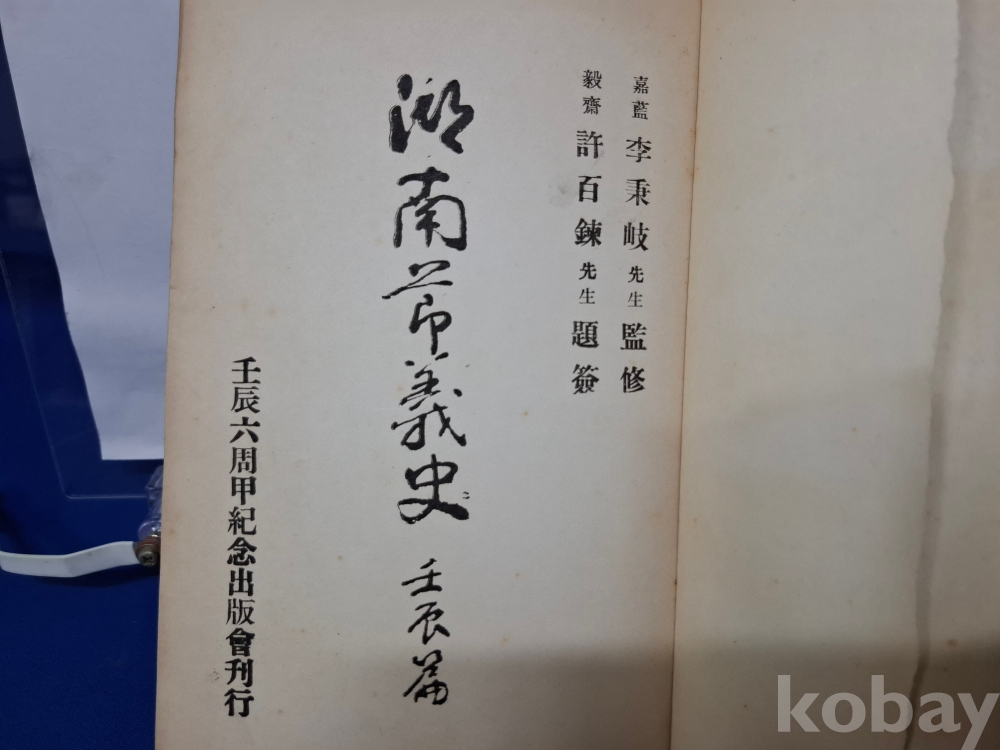 嘉藍 李秉岐 先生 監修
毅齋 許百鍊 先生 題簽
湖南節義史 壬辰篇
壬辰六周甲紀念出版會刊行
kobay